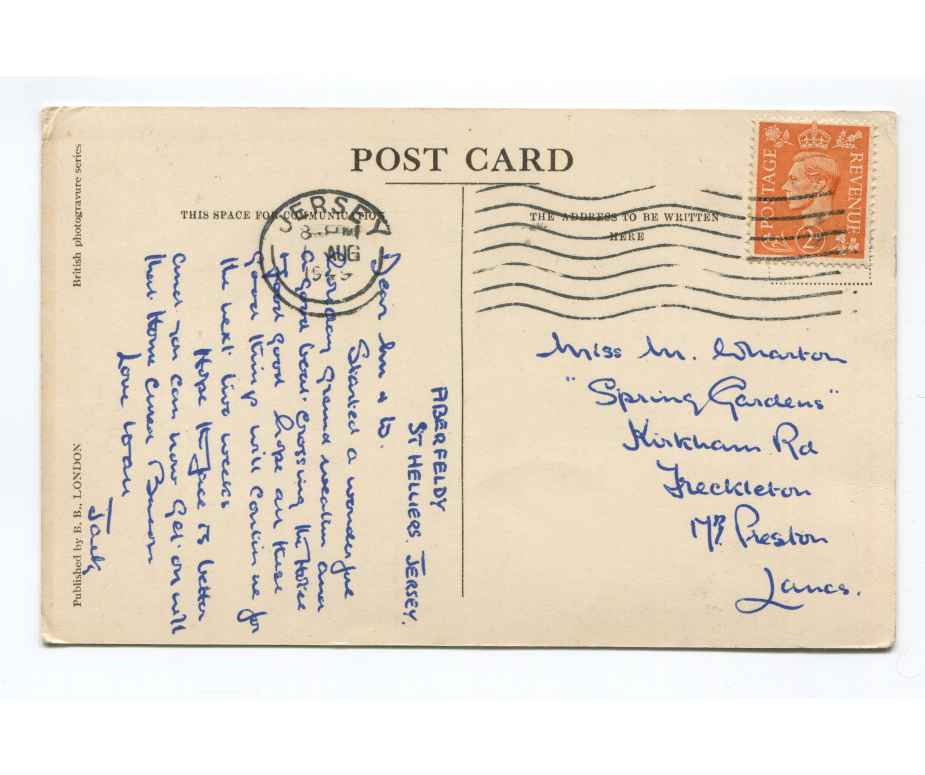 POST CARD
THIS SPACE FOR COMMUNICATION
THE ADDRESS TO BE WRITTEN
HERE
British photogravure series
Published by B. B., LONDON
JERSEY
PM
AUG
POSTAGE
REVENUE
2D
ABERFELDY
ST HELLIERS. JERSEY.
Dear M & W.
Started a wonderful
holiday grand weather and
a good boat crossing the Hotel
& food good hope all these
good things will continue for
the next two weeks
Hope the face is better
and you can now get on with
that Home Cured Bacon
Love to all
Jack
Miss M. Wharton
"Spring Gardens"
Kirkham Rd
Freckleton
Nr. Preston
Lancs.